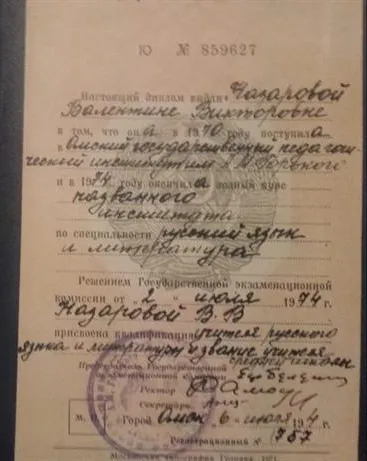 Ю № 859627
Настоящий диплом выдан Назаровой
Валентине Викторовне
в том, что она в 1970 году поступила
в Омский государственный педагоги-
ческий институт им. А.М. Горького
и в 1974 году окончила полный курс
названного
института
по специальности русский язык
и литература
Решением Государственной экзаменационной
комиссии от „2“ июля 1974 г.
Назаровой В.В
присвоена квалификация учителя русского
языка и литературы и звание учителя
средней школы
Председатель Государственной
экзаменационной
Ректор
Секретарь
М. П. Город Омск 6 июля 1974 г.
Регистрационный № 757
Московская типография Гознака. 1973.